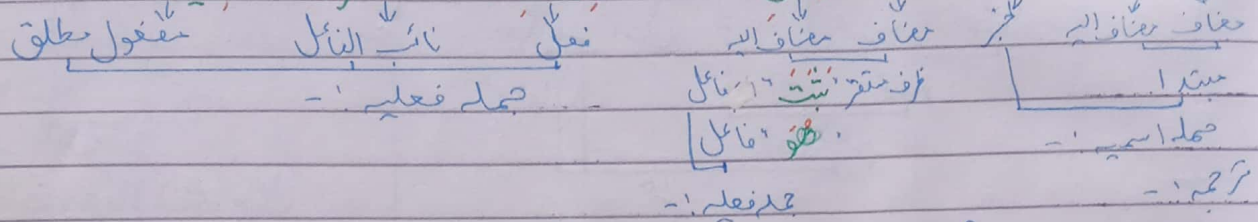 مضاف مضاف الیہ خبر مضاف مضاف الیہ فعل نائب الفاعل مفعول مطلق
مبتدا ظرف مستقر "ثبت" فاعل جملہ فعلیہ :-
جملہ اسمیہ :- "ھُوَ" فاعل
ترجمہ :- جملہ فعلیہ :-